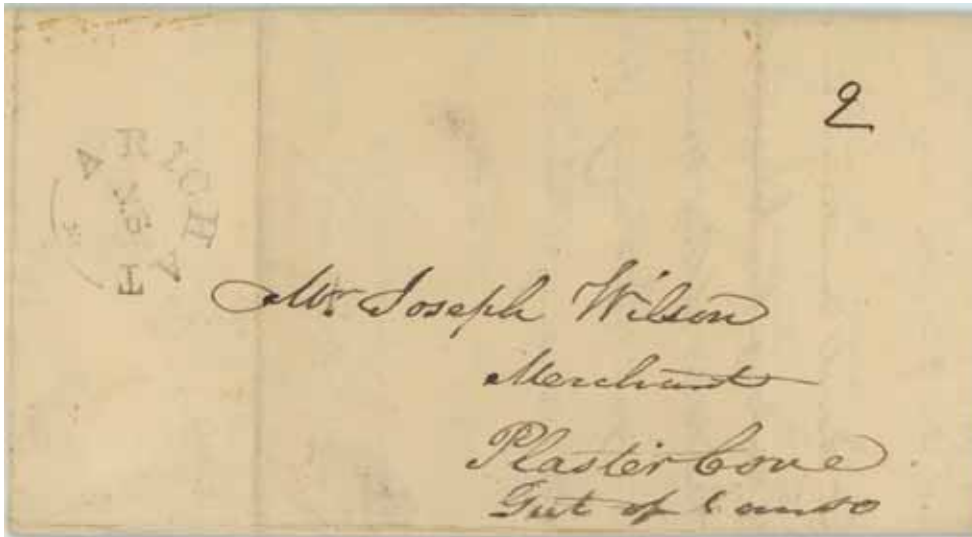 2
ARICHAT
Mr. Joseph Wilson
Merchant
Plaster Cove
Gut of Canso